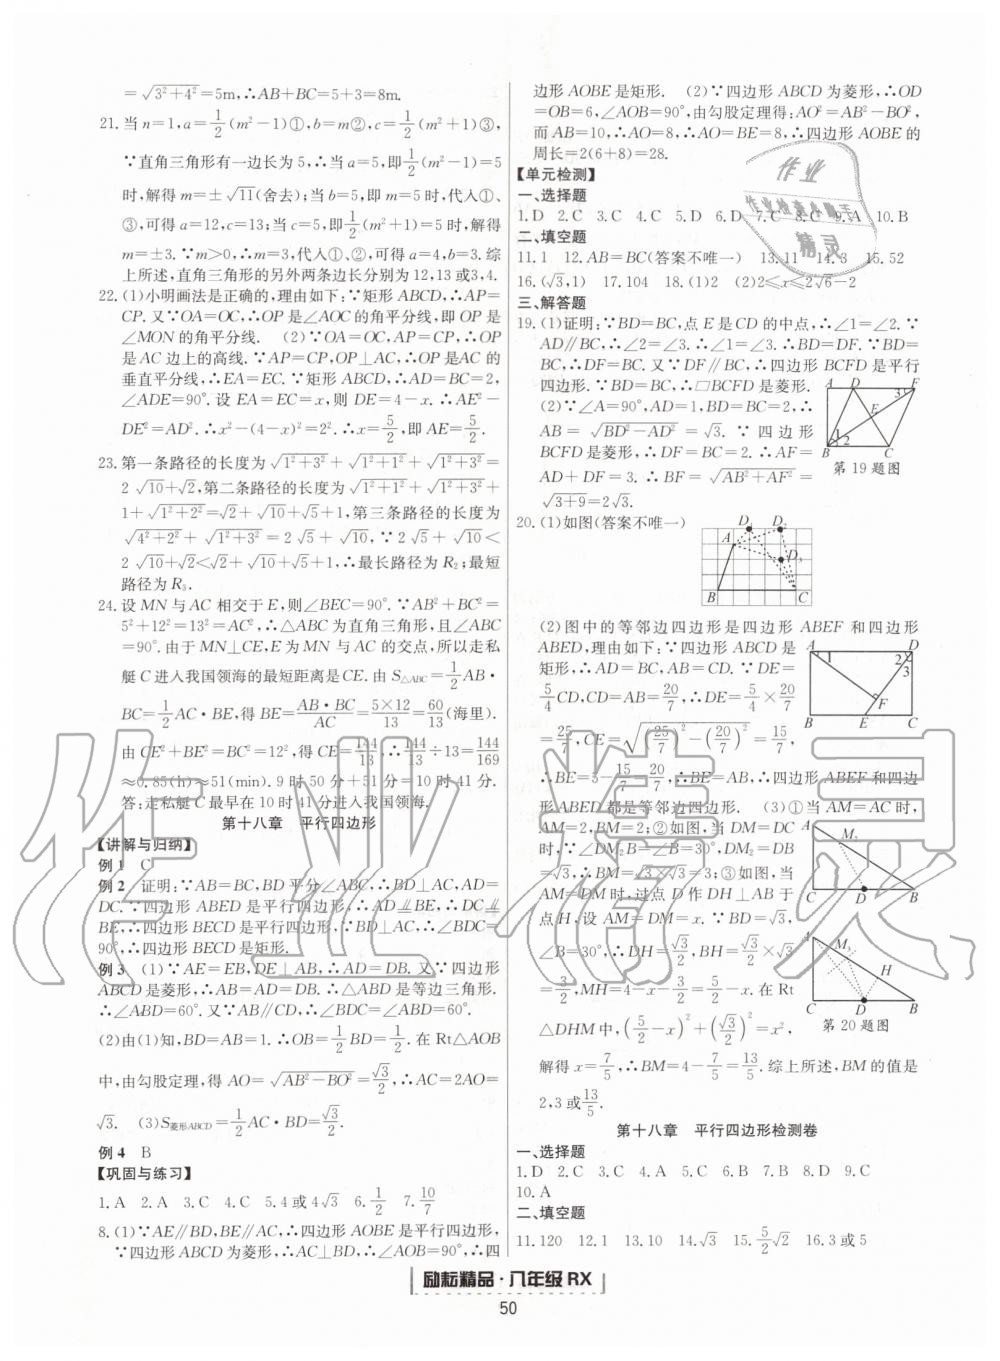 =√(3²+4²)=5m,∴AB+BC=5+3=8m.
21.当n=1,a=1/2(m²-1)①,b=m②,c=1/2(m²+1)③,
∵直角三角形有一边长为5,∴当a=5,即1/2(m²-1)=5
时,解得m=±√11(舍去);当b=5,即m=5时,代入①、
③,可得a=12,c=13;当c=5,即1/2(m²+1)=5时,解得
m=±3.∵m>0,∴m=3,代入①、②,可得a=4,b=3.综
上所述,直角三角形的另外两条边长分别为12,13或3,4.
22.(1)小明画法是正确的,理由如下:∵矩形ABCD,∴AP=
CP.又∵OA=OC,∴OP是∠AOC的角平分线,即OP是
∠MON的角平分线. (2)∵OA=OC,AP=CP,∴OP
是AC边上的高线.∵AP=CP,OP⊥AC,∴OP是AC的
垂直平分线,∴EA=EC.∵矩形ABCD,∴AD=BC=2,
∠ADE=90°.设EA=EC=x,则DE=4-x.∴AE²-
DE²=AD².∴x²-(4-x)²=2².∴x=5/2,即AE=5/2.
23.第一条路径的长度为√(1²+3²)+√(1²+1²)+√(1²+3²)=
2√10+√2,第二条路径的长度为√(1²+1²)+√(1²+3²)+
1+√(1²+2²)=√2+√10+√5+1,第三条路径的长度为
√(4²+2²)+√(1²+3²)=2√5+√10,∵2√5+√10<
2√10+√2<√2+√10+√5+1,∴最长路径为R₂;最短
路径为R₃.
24.设MN与AC相交于E,则∠BEC=90°.∵AB²+BC²=
5²+12²=13²=AC²,∴△ABC为直角三角形,且∠ABC
=90°.由于MN⊥CE,E为MN与AC的交点,所以走私
艇C进入我国领海的最短距离是CE.由S△ABC=1/2AB·
BC=1/2AC·BE,得BE=AB·BC/AC=5×12/13=60/13(海里).
由CE²+BE²=BC²=12²,得CE=144/13,∴144/13÷13=144/169
≈0.85(h)≈51(min).9时50分+51分=10时41分.
答:走私艇C最早在10时41分进入我国领海.
第十八章 平行四边形
【讲解与归纳】
例1 C
例2 证明:∵AB=BC,BD平分∠ABC,∴BD⊥AC,AD=
DC.∵四边形ABED是平行四边形,∴AD∥=BE,∴DC∥=
BE,∴四边形BECD是平行四边形.∵BD⊥AC,∴∠BDC=
90°,∴四边形BECD是矩形.
例3 (1)∵AE=EB,DE⊥AB,∴AD=DB.又∵四边形
ABCD是菱形,∴AB=AD=DB.∴△ABD是等边三角形.
∴∠ABD=60°.又∵AB∥CD,∴∠BDC=∠ABD=60°.
(2)由(1)知,BD=AB=1.∴OB=1/2BD=1/2.在Rt△AOB
中,由勾股定理,得AO=√(AB²-BO²)=√3/2,∴AC=2AO=
√3. (3)S菱形ABCD=1/2AC·BD=√3/2.
例4 B
【巩固与练习】
1.A 2.A 3.C 4.C 5.4或4√3 6.1/2 7.10/7
8.(1)∵AE∥BD,BE∥AC,∴四边形AOBE是平行四边形,
∵四边形ABCD为菱形,∴AC⊥BD,∴∠AOB=90°,∴四
边形AOBE是矩形. (2)∵四边形ABCD为菱形,∴OD
=OB=6,∠AOB=90°,由勾股定理得:AO²=AB²-BO²,
而AB=10,∴AO=8,∴AO=BE=8,∴四边形AOBE的
周长=2(6+8)=28.
【单元检测】
一、选择题
1.D 2.C 3.C 4.D 5.D 6.D 7.C 8.C 9.A 10.B
二、填空题
11.1 12.AB=BC(答案不唯一) 13.11 14.3 15.52
16.(√3,1) 17.104 18.(1)2 (2)2≤x≤2√6-2
三、解答题
19.(1)证明:∵BD=BC,点E是CD的中点,∴∠1=∠2.∵
AD∥BC,∴∠2=∠3.∴∠1=∠3.∴BD=DF.∵BD=
BC,∴DF=BC.又∵DF∥BC,∴四边形BCFD是平行
四边形.∵BD=BC,∴□BCFD是菱形.
(2)∵∠A=90°,AD=1,BD=BC=2,∴
AB=√(BD²-AD²)=√3.∵四边形
BCFD是菱形,∴DF=BC=2.∴AF=
AD+DF=3.∴BF=√(AB²+AF²)=
√(3+9)=2√3.
A D F
3
E
1
2
B C
第19题图
20.(1)如图(答案不唯一)
D₁ D₂
A
D₃
B C
(2)图中的等邻边四边形是四边形ABEF和四边形
ABED,理由如下:∵四边形ABCD是
矩形,∴AD=BC,AB=CD.∵DE=
5/4CD,CD=AB=20/7,∴DE=5/4×20/7
=25/7,CE=√((25/7)²-(20/7)²)=15/7,
∴BE=5-15/7=20/7,∴BE=AB,∴四边形ABEF和四边
形ABED都是等邻边四边形. (3)①当AM=AC时,
AM=2,BM=2;②如图,当DM=DC
时,∵∠DM₂B=∠B=30°,DM₂=DB
=√3,∴BM=√3×√3=3;③如图,当
AM=DM时,过点D作DH⊥AB于
点H,设AM=DM=x.∵BD=√3,
∠B=30°,∴DH=√3/2,BH=√3/2×√3
=3/2,MH=4-x-3/2=5/2-x.在Rt
△DHM中,(5/2-x)²+(√3/2)²=x²,
解得x=7/5,∴BM=4-7/5=13/5.综上所述,BM的值是
2,3或13/5.
A D
1 2
3
F
B E C
A
M₂
C D B
A
M₃
H
C D B
第20题图
第十八章 平行四边形检测卷
一、选择题
1.D 2.C 3.D 4.C 5.B 6.B 7.B 8.D 9.C
10.A
二、填空题
11.120 12.1 13.10 14.√3 15.5/2√2 16.3或5
励耘精品·八年级RX
50
作业
作业检查小助手
精灵
作业精灵